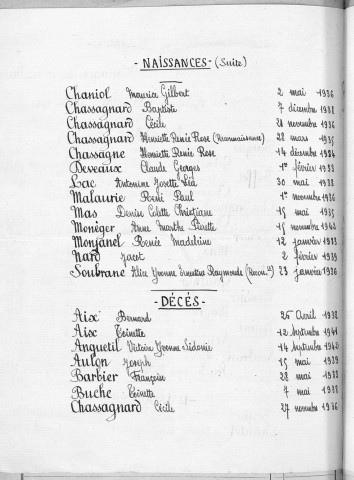 - NAISSANCES - (Suite)
Chaniol Maurice Gilbert 2 mai 1936
Chassagnard Baptiste 7 décembre 1938
Chassagnard Cécile 24 novembre 1936
Chassagnard Henriette Renée Rose (Reconnaissance) 28 mars 1935
Chassagne Henriette Renée Rose 14 décembre 1934
Deveaux Claude Georges 1er février 1933
Lac Antonine Josette Léa 30 mai 1938
Malaurie René Paul 1er novembre 1936
Mas Denise Colette Christiane 15 mai 1935
Monéger Anne Marthe Pierette 15 novembre
Monjanel Renée Madeleine 12 janvier 1933
Nard Jacot 2 février 1939
Soubrane Alice Yvonne Ernestine Raymonde (Reconn.ce) 23 janvier 1936
- DÉCÉS -
Aix Bernard 25 Avril 1938
Aix Toinette 12 Septembre 1941
Anguetil Victoire Yvonne Sidonie 14 Septembre 1940
Aulon Joseph 15 mai 1939
Barbier Françoise 28 mai 1938
Buche Toinette 7 mai 1938
Chassagnard Cécile 27 novembre 1936